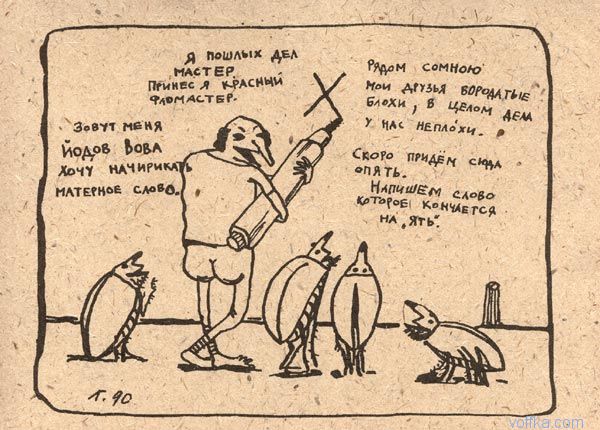 Я пошлых дел
мастер
принес я красный
фломастер.
Зовут меня
Йодов Вова
хочу начирикать
матерное слово.
Х
рядом сомною
мои друзья бородатые
блохи, в целом дела
у нас непло́хи.
Скоро придём сюда
опять.
Напишем слово
которое кончается
на „ять".
Г. 90
voffka.com